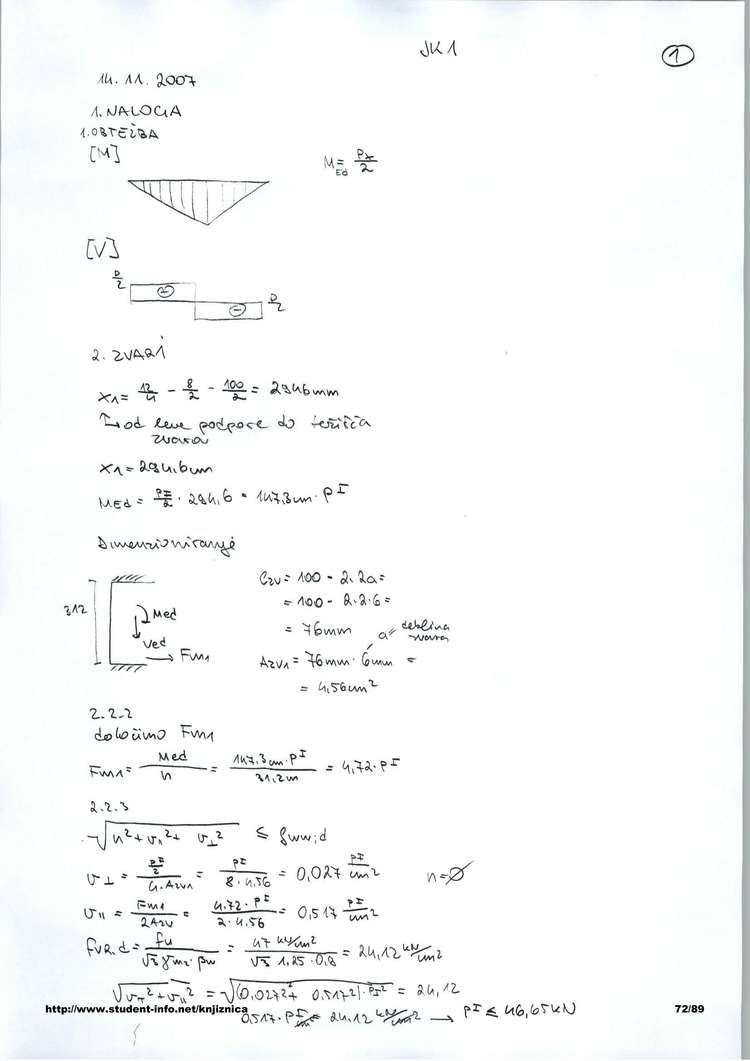 JK1
1
14. 11. 2007
1. NALOGA
1. OBTEŽBA
[M]
M_Ed = Px/2
[V]
P/2
P/2
2. ZVARI
x1 = 12/4 - 8/2 - 100/2 = 2946mm
od leve podpore do težišča
zvara
x1 = 294,6cm
MEd = P^I/2 · 294,6 = 147,3cm · P^I
Dimenzioniranje
312
Med
Ved
Fm1
Lzv = 100 - 2·2a =
= 100 - 2·2·6 =
= 76mm
a = debelina
zvara
Azv1 = 76mm · 6mm =
= 4,56cm²
2.2.2
določimo Fm1
Fm1 = Med/h = 147,3cm·P^I/31,2cm = 4,72·P^I
2.2.3
√(n² + v_∥² + v_⊥²) ≤ fvw;d
v⊥ = (P^I/2)/(4·Azv1) = P^I/(8·4,56) = 0,027 P^I/cm²
n = ∅
v∥ = Fm1/2Azv = 4,72·P^I/(2·4,56) = 0,517 P^I/cm²
FvR.d = fu/(√3 γm2·βw) = 47 kN/cm²/(√3 1,25·0,8) = 24,12 kN/cm²
√(v⊥² + v∥²) = √((0,027² + 0,517²)·P^I²) = 24,12
http://www.student-info.net/knjiznica
0,517·P^I/cm² = 24,12 kN/cm² → P^I ≤ 46,65kN
72/89